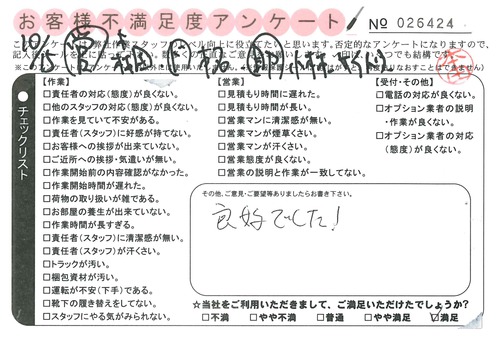 お客様不満足度アンケート
№ 026424
【作業】
□責任者の対応(態度)が良くない。
□他のスタッフの対応(態度)が良くない。
□作業を見ていて不安がある。
□責任者(スタッフ)に好感が持てない。
□お客様への挨拶が出来ていない。
□ご近所への挨拶・気遣いが無い。
□作業開始前の内容確認がなかった。
□作業開始時間が遅れた。
□荷物の取り扱いが雑である。
□お部屋の養生が出来ていない。
□作業時間が長すぎる。
□責任者(スタッフ)に清潔感が無い。
□責任者(スタッフ)が汗くさい。
□トラックが汚い。
□梱包資材が汚い。
□運転が不安(下手)である。
□靴下の履き替えをしてない。
□スタッフにやる気がみられない。
【営業】
□見積もり時間に遅れた。
□見積もり時間が長い。
□営業マンに清潔感が無い。
□営業マンが煙草くさい。
□営業マンが汗くさい。
□営業態度が良くない。
□営業の説明と作業が一致してない。
【受付・その他】
□電話の対応が良くない。
□オプション業者の説明・作業が良くない。
□オプション業者の対応(態度)が良くない。
チェックリスト
その他、ご意見・ご要望等ありましたらお書き下さい。
良好でした!
☆当社をご利用いただきまして、ご満足いただけたでしょうか?
□不満 □やや不満 □普通 □やや満足 ☑満足